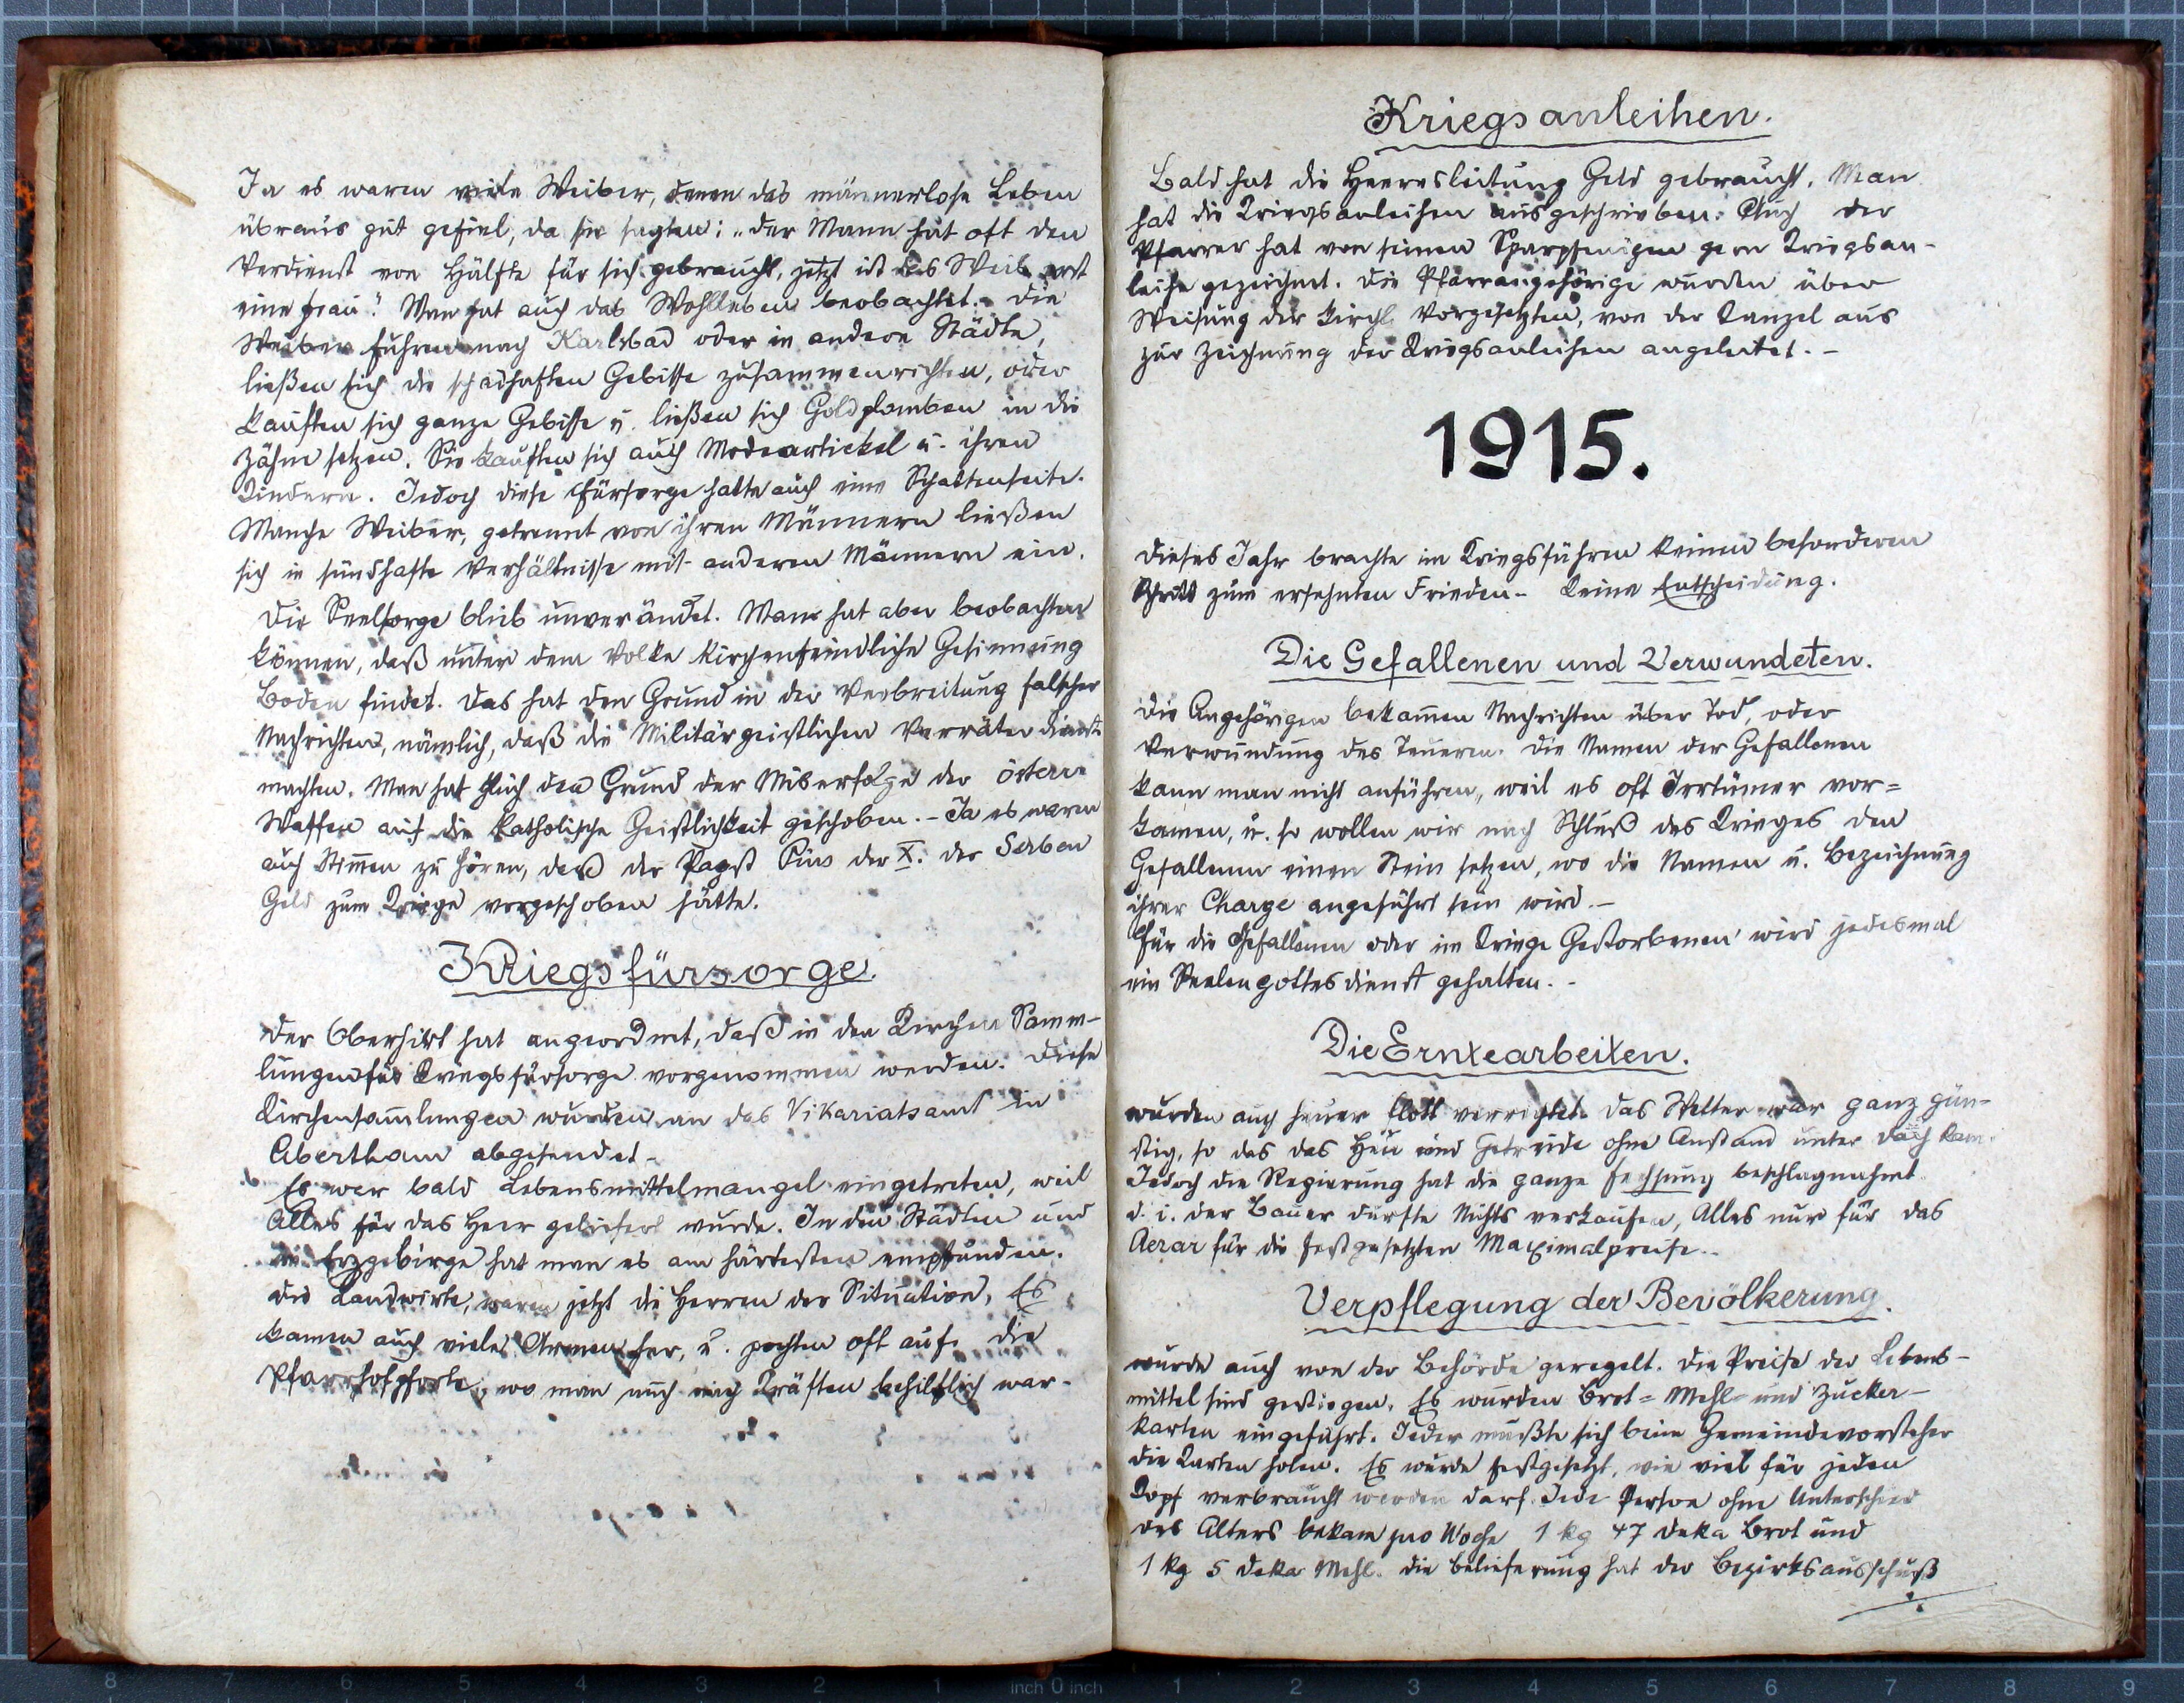 Ja es waren viele Weiber, denen das männerlose Leben
übraus gut gefiel, da sie sagten: „der Mann hat oft den
Verdienst von Hälfte für sich gebraucht, jetzt ist das Weib erst
eine Frau." Man hat auch das Wohlleben beobachtet. Die
Weiber fuhren nach Karlsbad oder in andere Städte,
ließen sich die schadhaften Gebisse zusammenrichten, oder
kauften sich ganze Gebisse u. ließen sich Goldplomben in die
Zähne setzen. Sie kauften sich auch Modeartickel u. ihren
Kindern. Jedoch diese Fürsorge hatte auch eine Schattenseite.
Manche Weiber, getrennt von ihren Männern ließen
sich in sündhafte Verhältnisse mit anderen Männern ein.
Die Seelsorge blieb unverändet. Man hat aber beobachten
können, daß unter dem Volke kirchenfeindliche Gesinnung
Boden findet. Das hat den Grund in der Verbreitung falscher
Nachrichten, nämlich, daß die Militärgeistlichen Verräterdienste
machten. Man hat auch den Grund der Miserfolge der österr.
Waffen auf die katholische Geistlichkeit geschoben. – Ja es waren
auch Stimmen zu hören, daß der Papst Pius der X. der Serben
Geld zum Kriege vorgeschoben hätte.
Kriegsfürsorge.
Der Oberhirt hat angeordnet, daß in den Kirchen Samm-
lungen für Kriegsfürsorge vorgenommen werden. Diese
Kirchensam̄lungen wurden an das Vikariatsamt in
Abertham abgesendet. –
Es war bald Lebensmittelmangel eingetreten, weil
Alles für das Heer geliefert wurde. In den Städten und
im Erzgebirge hat man es am härtesten empfunden.
Die Landwirte, waren jetzt die Herren der Situation. Es
kamen auch viele Armen her, u. pochten oft auf die
Pfarrhofpforte, wo man auch nach Kräften behilflich war. –
Kriegsanleihen.
Bald hat die Heeresleitung Geld gebraucht. Man
hat die Kriegsanleihen ausgeschrieben. Auch der
Pfarrer hat von seinen Sparpfenigen gern Kriegsan-
leihe gezeichnet. Die Pfarrangehörige wurden über
Weisung der kirchl. Vorgesetzten, von der Kanzel aus
zur Zeichnung der Kriegsanleihen angeleitet. –
1915.
Dieses Jahr brachte im Kriegsführen keinen besonderen
Schritt zum ersehnten Frieden – keine Entscheidung.
Die Gefallenen und Verwundeten.
Die Angehörigen bekam̄en Nachrichten über Tod, oder
Verwundung des Teueren. Die Namen der Gefallenen
kann man nicht anführen, weil es oft Irrtümer vor=
kamen, u. so wollen wir nach Schluß des Krieges den
Gefallenen einen Stein setzen, wo die Namen u. Bezeichnung
ihrer Charge angeführt sein wird. –
Für die Gefallenen oder im Kriege Gestorbenen wird jedesmal
ein Seelengottesdienst gehalten. –
Die Erntearbeiten.
wurden auch heuer flott verrichtet. Das Wetter war ganz gün-
stig, so das das Heu und Getreide ohne Anstand unter Dach kam.
Jedoch die Regierung hat die ganze Fechsung beschlagnahmt
d. i. der Bauer durfte Nichts verkaufen, Alles nur für das
Aerar für die festgesetzten Maximalpreise. –
Verpflegung der Bevölkerung.
wurde auch von der Behörde geregelt. Die Preise der Lebens-
mittel sind gestiegen. Es wurden Brot= Mehl- und Zucker-
karten eingeführt. Jeder mußte sich beim Gemeindevorsteher
die Karten holen. Es wurde festgesetzt, wie viel für jeden
Kopf verbraucht werden darf. Jede Person ohne Unterschied
des Alters bekam pro Woche 1 kg 47 deka Brot und
1 kg 5 deka Mehl. Die Belieferung hat der Bezirksausschuß
8 7 6 5 4 3 2 1 inch 0 inch 1 2 3 4 5 6 7 8 9